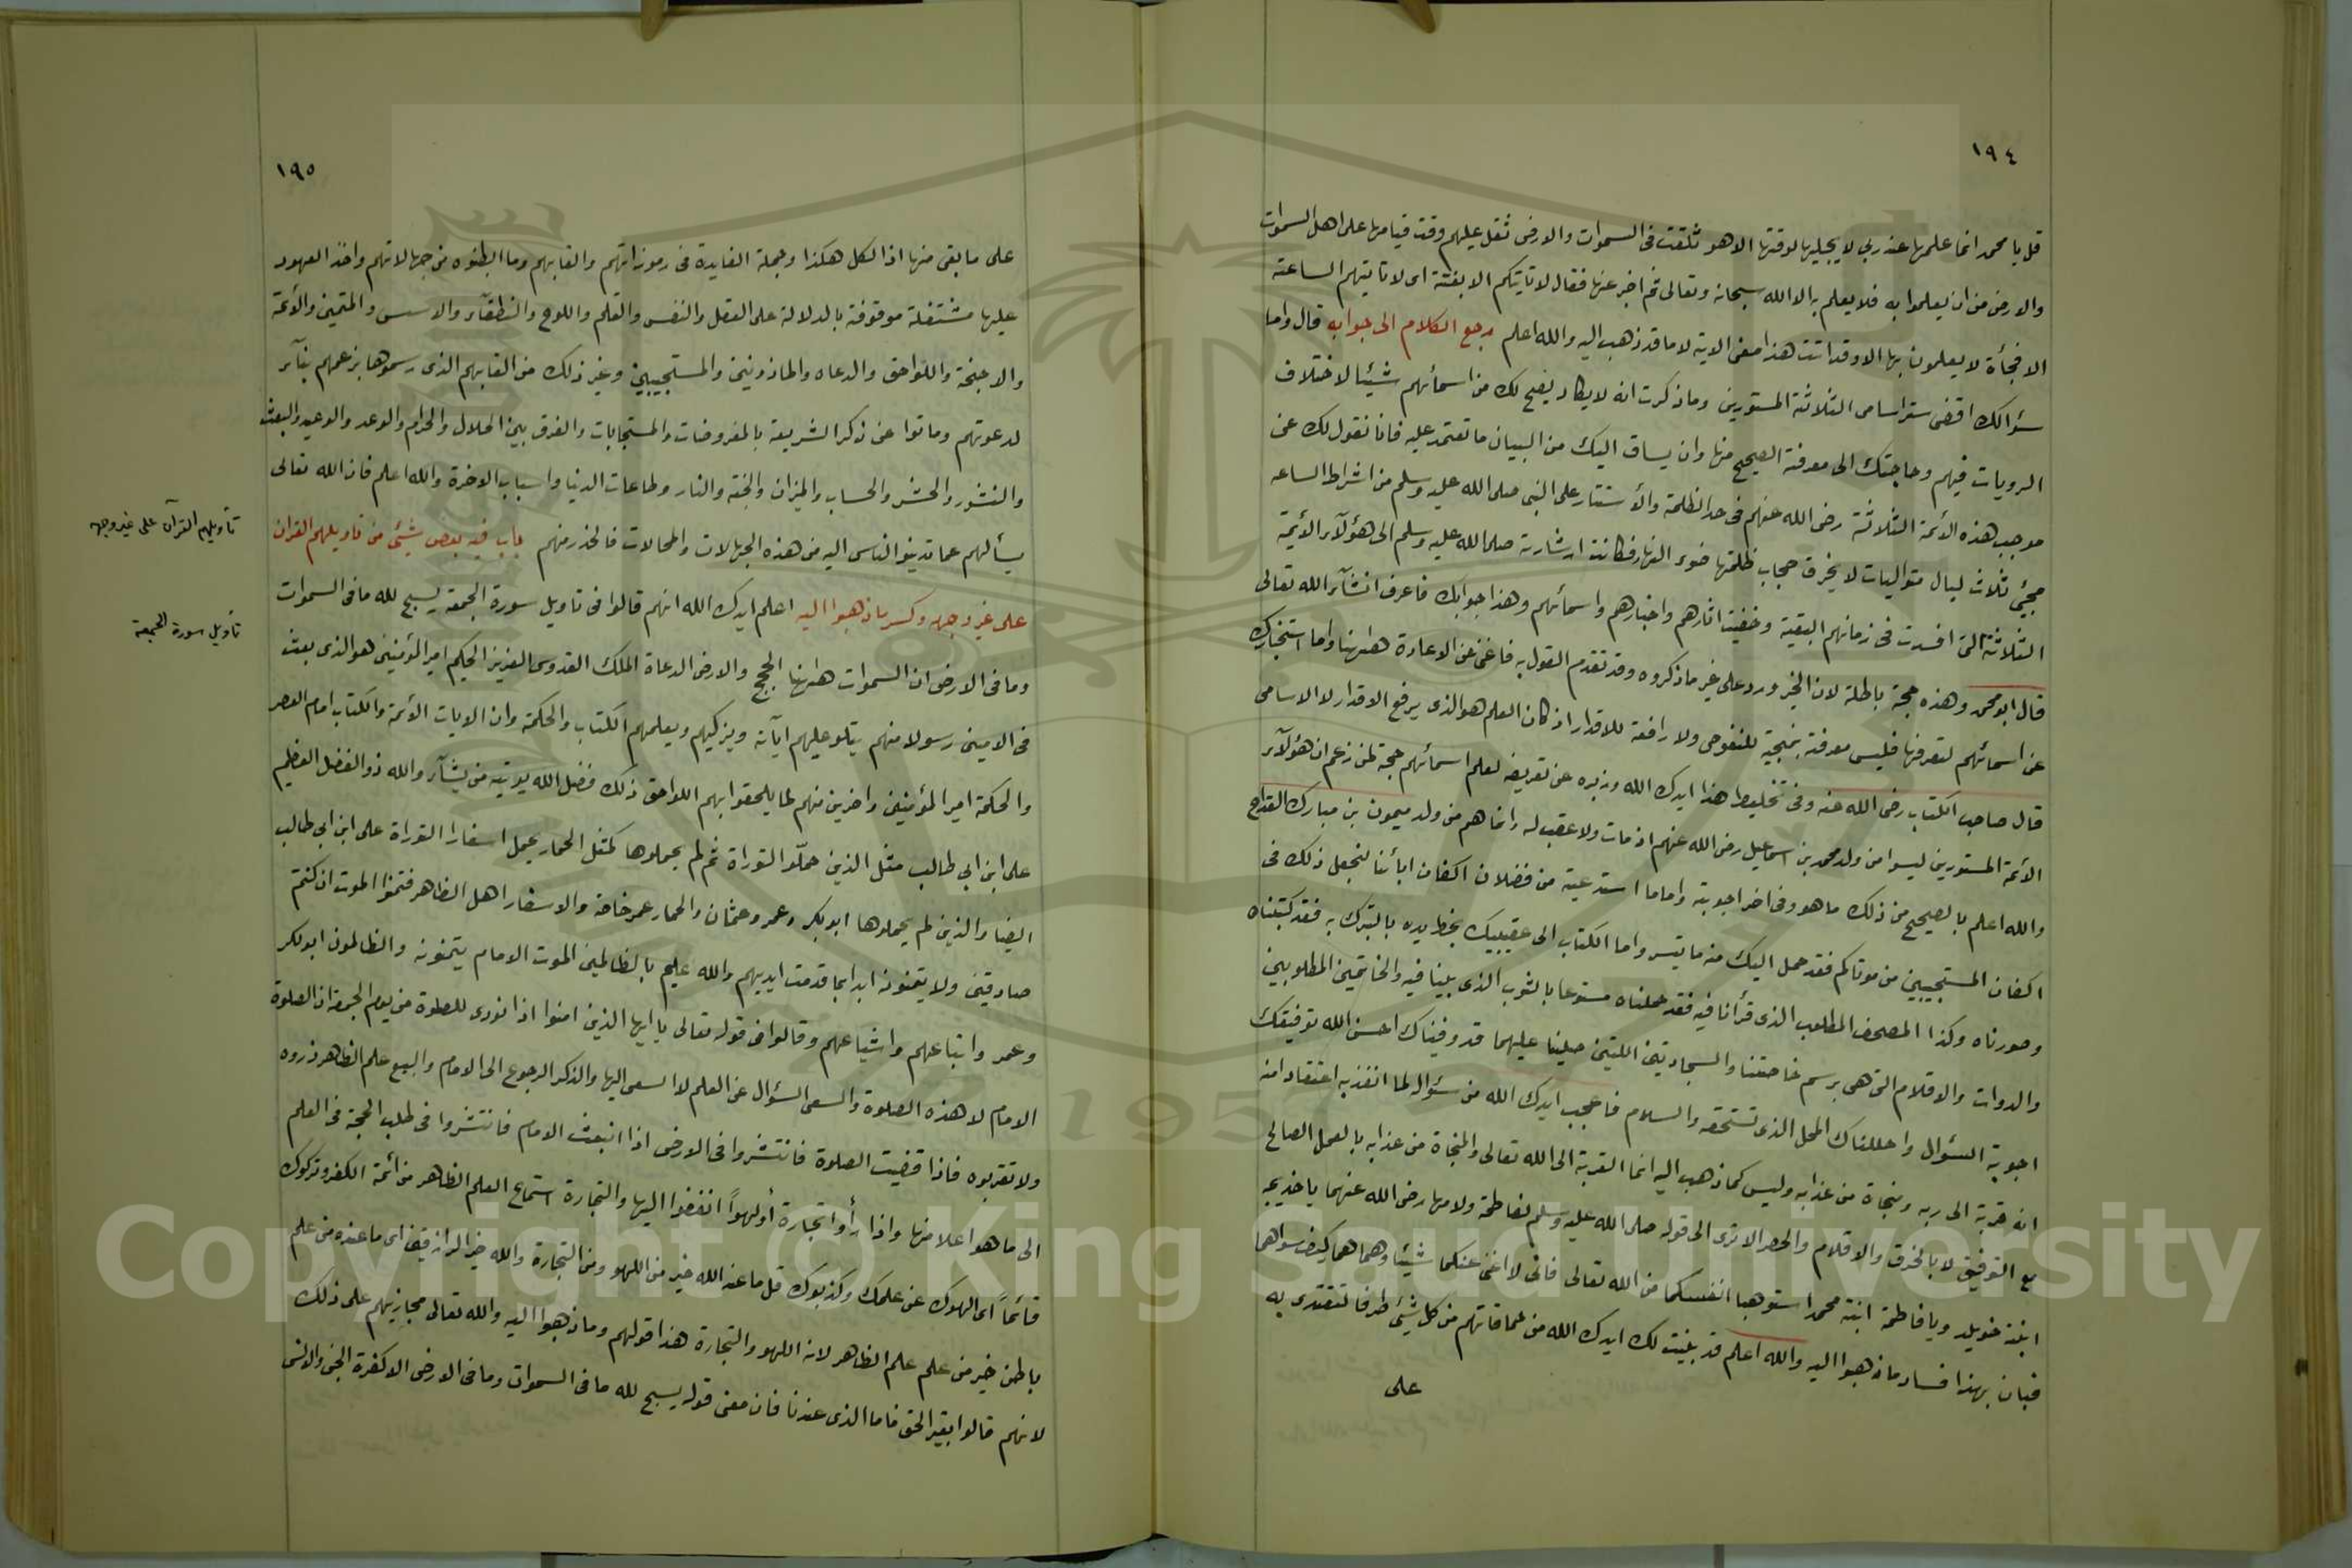 ١٩٤
قل يا محمد انما علمها عند ربي لا يجليها لوقتها الا هو ثقلت فى السموات والارض ثقل عليهم وقت قيامها على اهل السموات
والارض من ان يعلموا به فلا يعلم به الا الله سبحانه وتعالى ثم اخبر عنها فقال لا تاتيكم الا بغتة اى لا تاتيهم الساعة
الا فجأة لا يعلمون بها الا وقد اتت هذا معنى الاية لا ما قد ذهب اليه والله اعلم رجع الكلام الى جوابه قال واما
سئوالك اقضى ستر اسامى الثلاثة المستورين وما ذكرت انه لا يكاد يضح لك من اسمائهم شيئا لاختلاف
الرويات فيهم وحاجتك الى معرفة الصحيح منها وان يساق اليك من البيان ما تعتمد عليه فانا نقول لك عن
موجب هذه الائمة الثلاثة رضى الله عنهم فى حد الظلمة والاستتار على النبى صلى الله عليه وسلم من اشراط الساعه
مجيئ ثلاث ليال متواليات لا يخرق حجاب ظلمتها ضوء النهار فكانت ارشارته صلى الله عليه وسلم الى هؤلآء الائمة
الثلاثة التى افسدت فى زمانهم البقية وخفيت اثارهم واخبارهم واسمائهم وهذا جوابك فاعرف انشآء الله تعالى
قال ابو محمد وهذه حجة باطلة لان الخبر ورد على غير ما ذكروه وقد تقدم القول به فاغنى عن الاعادة هاهنا واما استخبارك
عن اسمائهم لتعرفها فليس معرفة بمنجية للنفوس ولا رافعة للاقدار اذ كان العلم هو الذى يرفع الاقدار لا الاسامى
قال صاحب الكتاب رضى الله عنه وفى تخليط هذا ايدك الله وزبره عن تعريضه لعلم اسمائهم حجة لمن زعم ان هؤلآء
الائمة المستورين ليسوا من ولد محمد بن اسماعيل رضى الله عنهم اذ مات ولا عقب له وانما هم من ولد ميمون بن مبارك القداح
والله اعلم بالصحيح من ذلك ما هو وفى اخر اجوبته واما ما استدعيته من فضلان اكفان ابائنا لنجعل ذلك فى
اكفان المستجيبين من موتاكم فقد حمل اليك منه ما تيسر واما الكتاب الى عقيبيك بخط يده بالتبرك به فقد كتبناه
وصورناه وكذا المصحف المطلوب الذى قرأنا فيه فقد حملناه مستوعا بالثوب الذى بلينا فيه والخاتمين المطلوبين
والدوات والاقلام التى هى برسم خاصتنا والسجادتين اللتين صلينا عليهما قد وفيناك احسن الله توفيقك
اجوبة السؤال واحللناك المحل الذى تستحقه والسلام فاعجب ايدك الله من سئوال لما انفذ به اعتقاد امنه
انه قربة الى ربه ومنجاة من عذابه وليس كما ذهب اليه انما القربة الى الله تعالى والمنجاة من عذابه بالعمل الصالح
مع التوفيق لا بالخرق والاقلام والحصر الا ترى الى قوله صلى الله عليه وسلم لفاطمة ولامها رضى الله عنهما يا خديجه
ابنة خويلد ويا فاطمة ابنة محمد استوهبا انفسكما من الله تعالى فانى لا اغنى عنكما شيئا وهما هما كيف سواهما
فبان بهذا فساد ما ذهبوا اليه والله اعلم قد بينت لك ايدك الله من حماقاتهم من كل شيئ طرفا لتقتدى به
على
١٩٥
على ما بقى منها اذ الكل هكذا وجملة الفايدة فى رموزاتهم والقابهم وما ابطنوه من جهالاتهم واخذ العهود
عليها مشتغلة موقوفة بالدلالة على العقل والنفس والقلم واللوح والنطقآء والاسس والمتمين والأئمة
والاجنحة واللواحق والدعاه والماذونين والمستجيبين وغير ذلك من القابهم الذى رسموها بزعمهم بنآء
لدعوتهم وماتوا عن ذكر الشريعة بالمفروضات والمستجابات والفرق بين الحلال والحرام والوعد والوعيد والبعث
والنشور والحشر والحساب والميزان والجنة والنار وطاعات الدنيا واسباب الاخرة والله اعلم فان الله تعالى
يسألهم عما تدينو الناس اليه من هذه الجهالات والمحالات فالحذر منهم باب فيه بعض شيئ من تاويلهم القران
على غير وجهه وكسر ما ذهبوا اليه اعلم ايدك الله انهم قالوا فى تاويل سورة الجمعة يسبح لله ما فى السموات
وما فى الارض ان السموات هاهنا الحجج والارض الدعاة الملك القدوس العزيز الحكيم امير المؤمنين هو الذى بعث
فى الاميين رسولا منهم يتلو عليهم اياته ويزكيهم ويعلمهم الكتاب والحكمة وان الايات الائمة والكتاب امام العصر
والحكمة امير المؤمنين واخرين منهم لما يلحقوا بهم اللواحق ذلك فضل الله يوتيه من يشآء والله ذو الفضل العظيم
على ابن ابى طالب مثل الذين حمّلوا التوراة ثم لم يحملوها كمثل الحمار يحمل اسفارا التوراة على ابن ابى طالب
ايضا والذين لم يحملوها ابو بكر وعمر وعثمان والحمار عمر خاصة والاسفار اهل الظاهر فتمنوا الموت ان كنتم
صادقين ولا يتمنونه ابدا بما قدمت ايديهم والله عليم بالظالمين الموت الامام يتمنونه والظالمون ابو بكر
وعمر واتباعهم واشياعهم وقالوا فى قوله تعالى يا ايها الذين امنوا اذا نودى للصلوة من يوم الجمعة ان الصلوة
الامام لا هذه الصلوة والسعى السئوال عن العلم لا السعى اليها والذكر الرجوع الى الامام والبيع علم الظاهر ذروه
ولا تقربوه فاذا قضيت الصلوة فانتشروا فى الارض اذا انبعث الامام فانتشروا فى طلب الحجة فى العلم
الى ما هو اعلا منها واذا رأوا تجارة أو لهواً انفضوا اليها والتجارة استماع العلم الظاهر من ائمة الكفر وتركوك
قائماً اى الهوك عن علمك وكذبوك قل ما عند الله خير من اللهو ومن التجارة والله خير الرازقين اى ما عنده من علم
باطن خير من علم علم الظاهر لانه اللهو والتجارة هذا قولهم وما ذهبوا اليه والله تعالى مجازيهم على ذلك
لانهم قالوا بغير الحق فاما الذى عندنا فان معنى قوله يسبح لله ما فى السموات وما فى الارض الا كفرة الجن والانس
تأويلهم القرآن على غير وجهه
تأويل سورة الجمعة
Copyright © King Saud University
1957